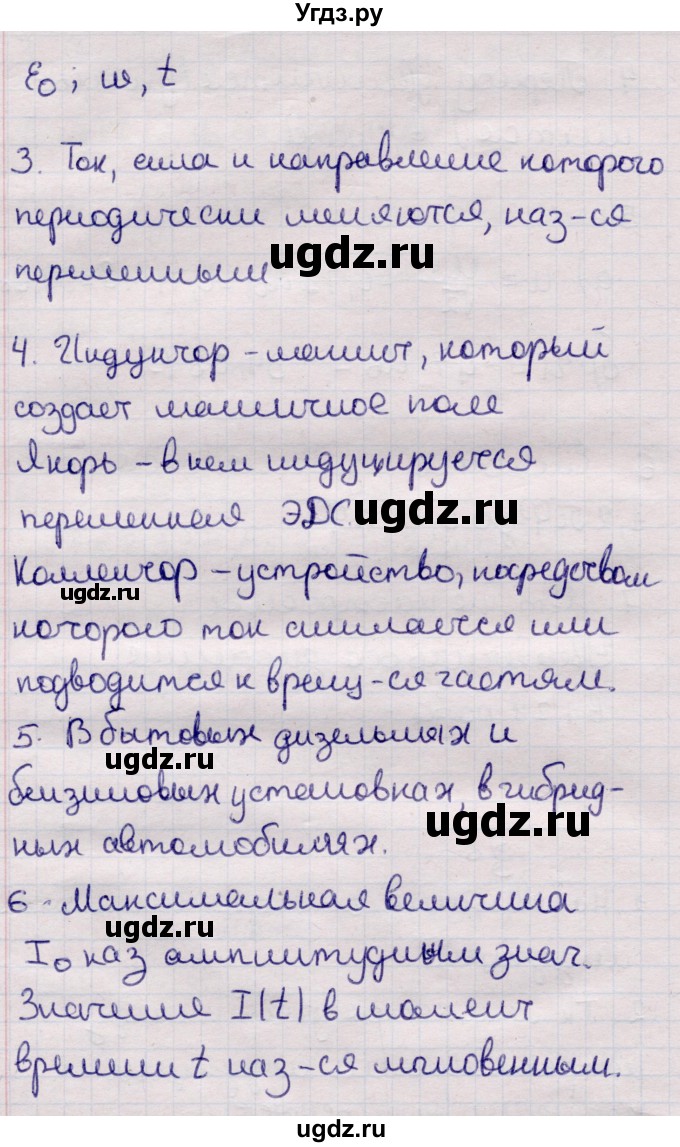 Угдз.ру
ε₀; ω, t
3. Ток, сила и направление которого
периодически меняются, наз-ся
ugdz.ru
переменным.
4. Индуктор – магнит, который
создает магнитное поле
Якорь – в нем индуцируется
переменная ЭДС.
ugdz.ru
Коллектор – устройство, посредством
ugdz.ru
которого ток снимается или
подводится к вращ-ся частям.
5. В бытовых дизельных и
ugdz.ru
бензиновых установках, в гибрид-
ugdz.ru
ных автомобилях.
6. Максимальная величина
ugdz.ru
I₀ наз амплитудным знач.
Значения I(t) в момент
времени t наз-ся мгновенным.
ugdz.ru